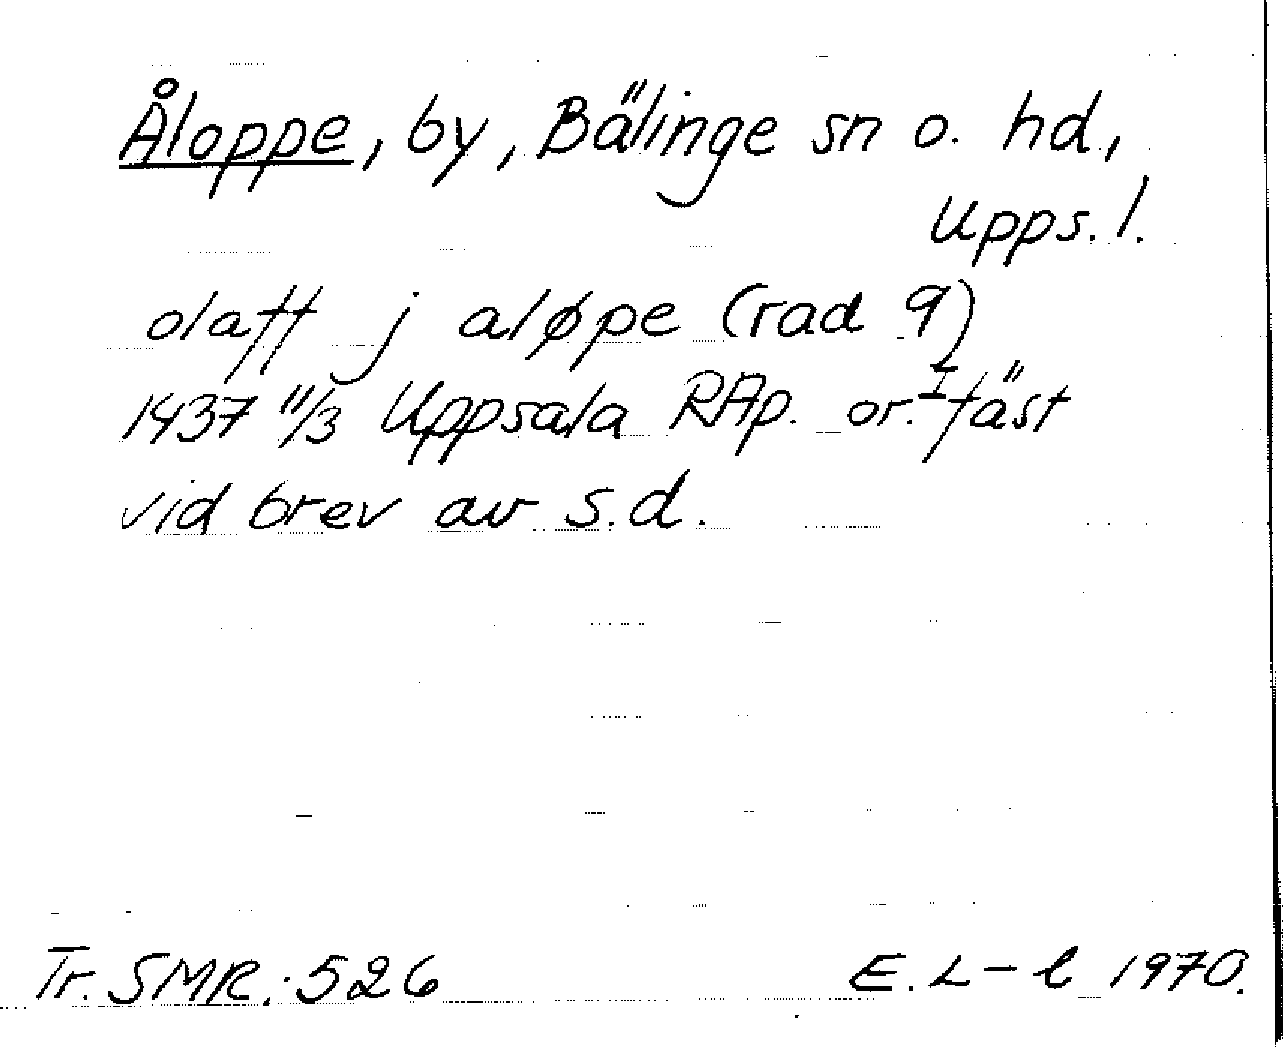 Åloppe, by, Bälinge sn o. hd.,
Upps. l.
olaff j aløpe (rad 9)
1437 11/3 Uppsala RAp. or. I fäst
vid brev av s.d.
Tr. SMR. :526 E. L-l 1970.